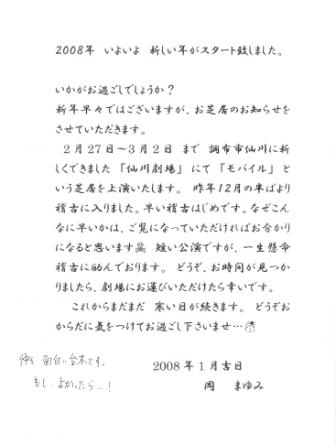 2008年 いよいよ 新しい年がスタート致しました。
いかがお過ごしでしょうか？
新年早々ではございますが、お芝居のお知らせを
させていただきます。
２月27日～３月２日 まで 調布市仙川に新
しくできました「仙川劇場」にて「モバイル」と
いう芝居を上演いたします。 昨年12月の半ばより
稽古に入りました。早い稽古はじめです。なぜこん
なに早いかは、ご覧になっていただければお分かり
になると思います 短い公演ですが、一生懸命
稽古に励んでおります。 どうぞ、お時間が見つか
りましたら、劇場にお運びいただけたら幸いです。
これからまだまだ 寒い日が続きます。 どうぞお
からだに気をつけてお過ごし下さいませ…
2008年１月吉日
岡 まゆみ
面白い台本です。
もし、よかったら…！